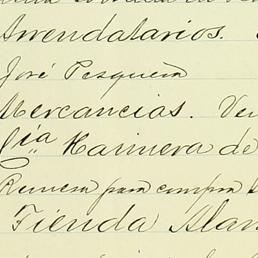 Arrendatarios.
José Pesqueira
Mercancias. Ven
Cía Harinera de
Remesa para compra
Tienda Alam